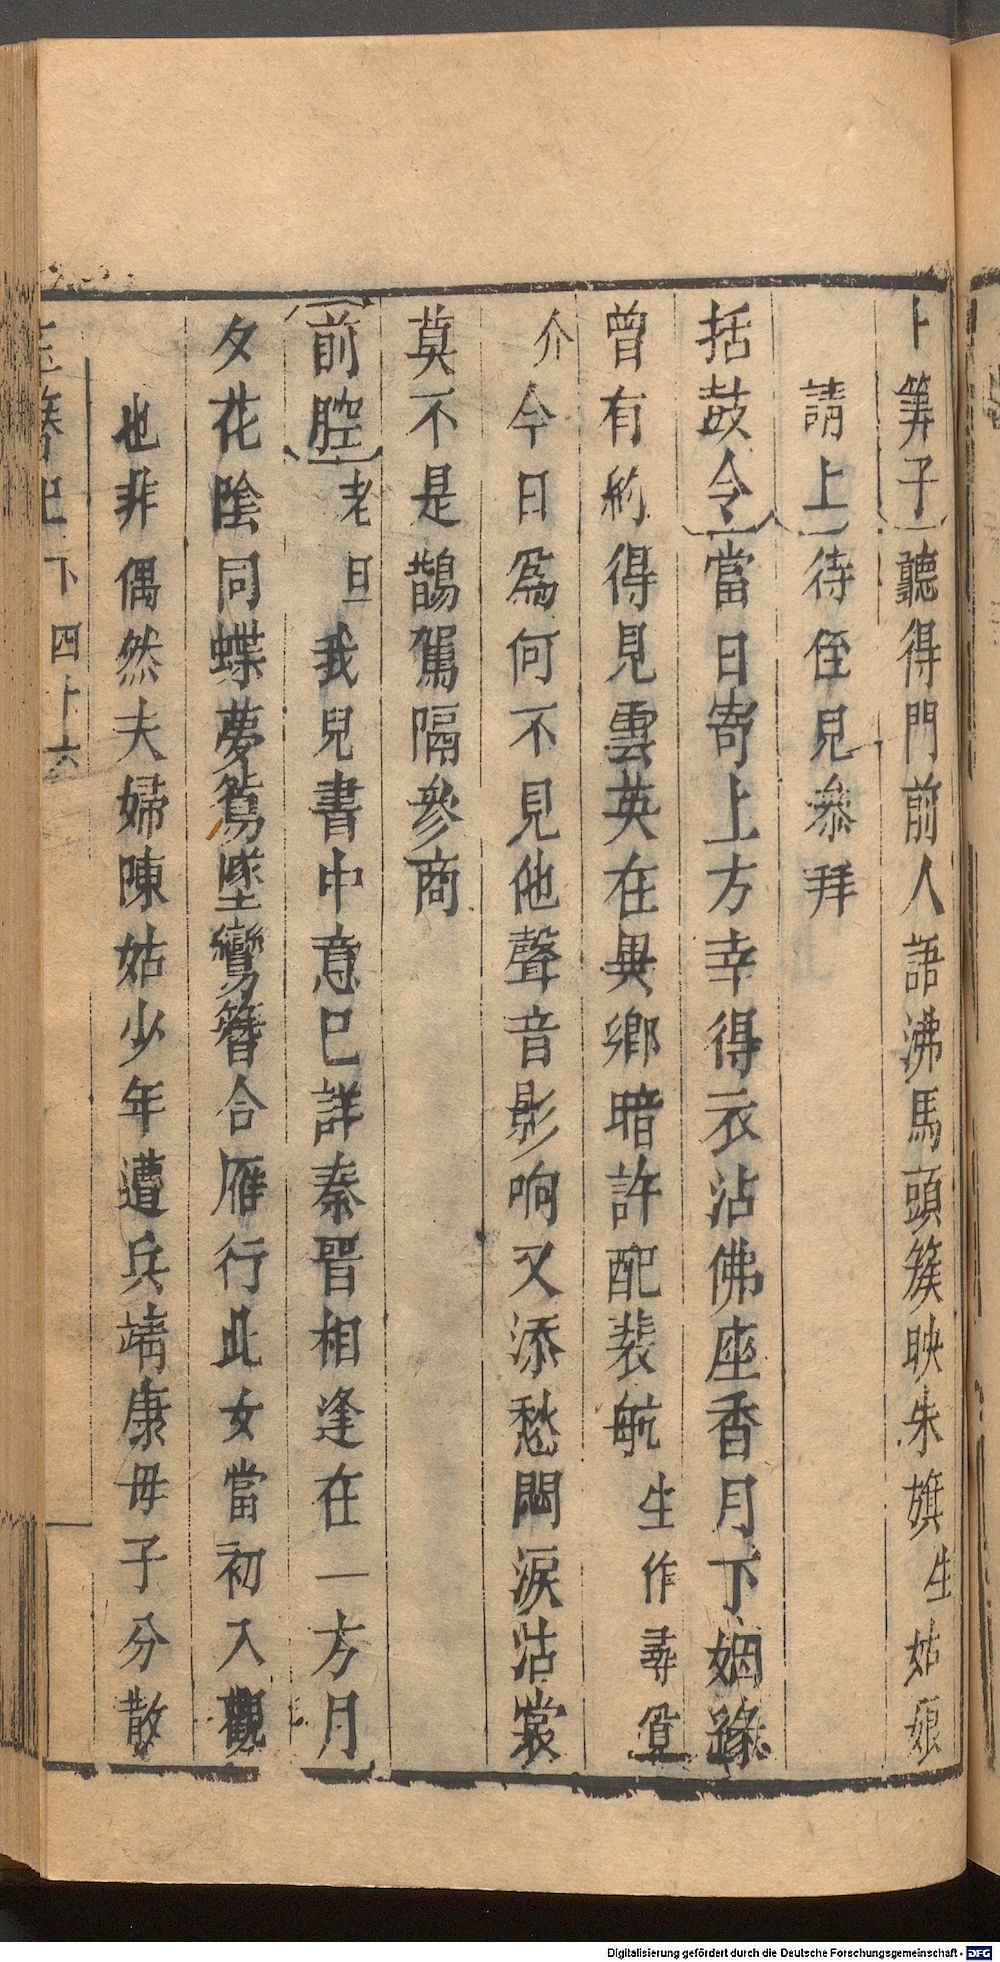 卜筭子聽得門前人語沸馬頭簇映朱旗生姑娘
請上待侄兒參拜
括鼓令當日寄上方幸得衣沾佛座香月下姻緣
曾有約得見雲英在異鄉暗許配裴航生作尋覓
介今日爲何不見他聲音影响又添愁悶淚沾裳
莫不是鵲駕隔參商
前腔老旦我兒書中意已詳秦晉相逢在一方月
夕花陰同蝶夢鴛墜鸞簪合雁行此女當初入觀
也非偶然夫婦陳姑少年遭兵靖康毋子分散
玉簪記下四十六
Digitalisierung gefördert durch die Deutsche Forschungsgemeinschaft - DFG